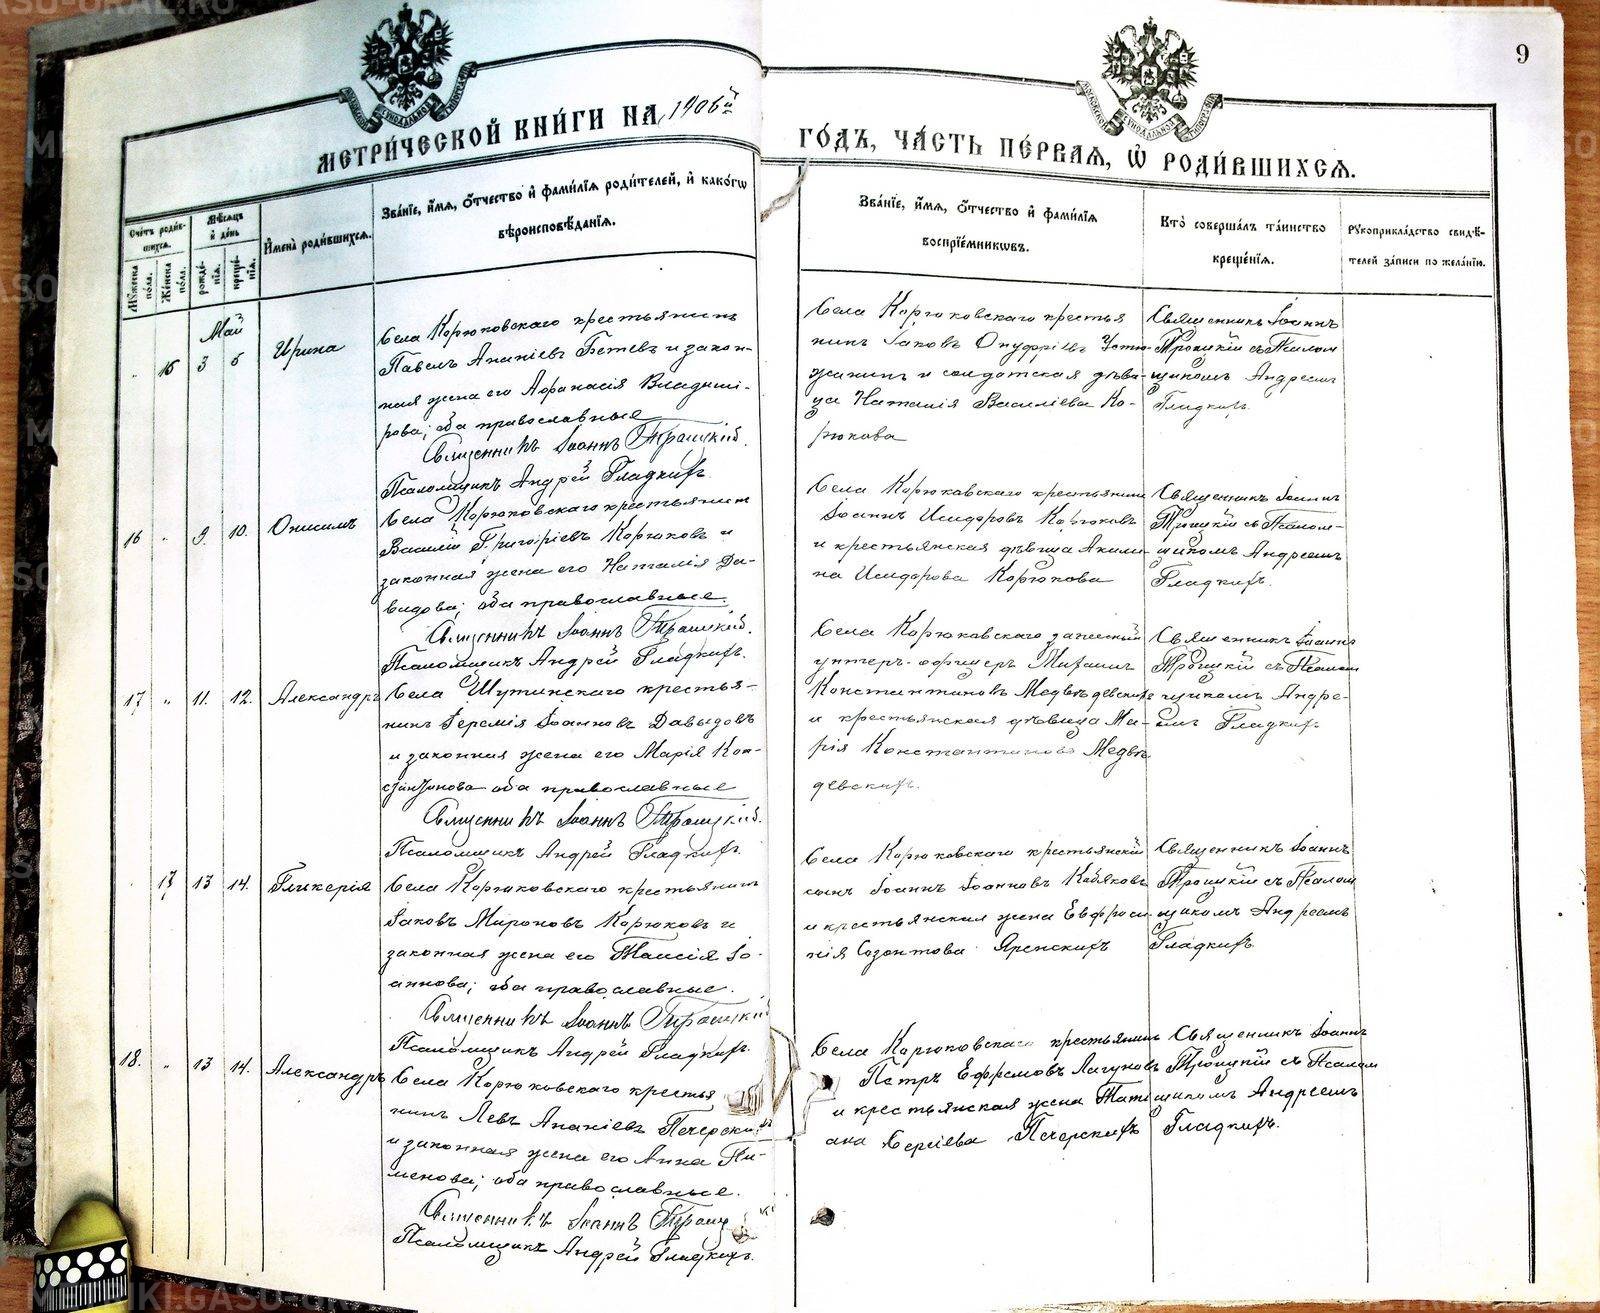 9
МЕТРИ́ЧЕСКОЙ КНИ́ГИ НА 1906й
ГО́ДЪ, ЧА́СТЬ ПЕ́РВАЯ, Ѡ РОДИ́ВШИХСЯ.
Сче́тъ роди́в-
шихся.
Му́жеска
по́ла.
Же́нска
по́ла.
Мѣ́сяцъ
и де́нь
рожде́-
нія.
креще́-
нія.
Имена̀ роди́вшихся.
Зва́ніе, и́мя, о́тчество и фами́лія роди́телей, и како́гѡ
вѣроисповѣ́данія.
Зва́ніе, и́мя, о́тчество и фами́лія
воспріе́мникѡвъ.
Кто̀ соверша́лъ та́инство
креще́нія.
Рукоприкла́дство свидѣ́-
телей за́писи по жела́нію.
Май
16 3 6 Ирина
Села Корюковскаго крестьянинъ
Павелъ Ананіевъ Бетевъ и закон-
ная жена его Афанасія Владими-
рова; оба православные
Священникъ Іоаннъ Троицкій.
Псаломщикъ Андрей Гладкихъ.
Села Корюковскаго крестья
нинъ Іаковъ Онуфріевъ Устю-
жанинъ и солдатская дѣви-
ца Наталія Василіева Ко-
рюкова
Священникъ Іоаннъ
Троицкій съ Псалом
щикомъ Андреемъ
Гладкихъ.
16 " 9. 10. Онисимъ
Села Корюковскаго крестьянинъ
Василій Григоріевъ Корюковъ и
законная жена его Наталія Да-
видова; оба православные.
Священникъ Іоаннъ Троицкій.
Псаломщикъ Андрей Гладкихъ.
Села Корюковскаго крестьянинъ
Іоаннъ Исидоровъ Корюковъ
и крестьянская дѣвица Акили-
на Исидорова Корюкова
Священникъ Іоаннъ
Троицкій съ Псалом-
щикомъ Андреемъ
Гладкихъ.
17 " 11. 12. Александръ
Села Шутинскаго крестья-
нинъ Іеремія Іоанновъ Давыдовъ
и законная жена его Марія Кон-
стантинова оба православные
Священникъ Іоаннъ Троицкій.
Псаломщикъ Андрей Гладкихъ.
Села Корюковскаго запасный
унтеръ-офицеръ Михаилъ
Константиновъ Медвѣдевскихъ
и крестьянская дѣвица Ма-
рія Константинова Медвѣ
девскихъ.
Священникъ Іоаннъ
Троицкій съ Псалом
щикомъ Андре-
емъ Гладкихъ
17 13 14. Гликерія
Села Корюковскаго крестьянинъ
Іаковъ Мироновъ Корюковъ и
законная жена его Таисія Іо-
аннова; оба православные.
Священникъ Іоаннъ Троицкій
Псаломщикъ Андрей Гладкихъ.
Села Корюковскаго крестьянскій
сынъ Іоаннъ Іоанновъ Кобяковъ
и крестьянская жена Евфроси
нія Созонтова Яренскихъ
Священникъ Іоаннъ
Троицкій съ Псалом
щикомъ Андреемъ
Гладкихъ
18. " 13 14. Александръ
Села Корюковскаго крестья
нинъ Левъ Ананіевъ Печерски
и законная жена его Анна Пи-
менова; оба православные.
Священникъ Іоаннъ Троиц
Псаломщикъ Андрей Гладкихъ.
Села Корюковскаго крестьянинъ
Петръ Ефремовъ Лагуновъ
и крестьянская жена Тати
ана Сергіева Печерскихъ
Священникъ Іоаннъ
Троицкій съ Псалом
щикомъ Андреемъ
Гладкихъ.